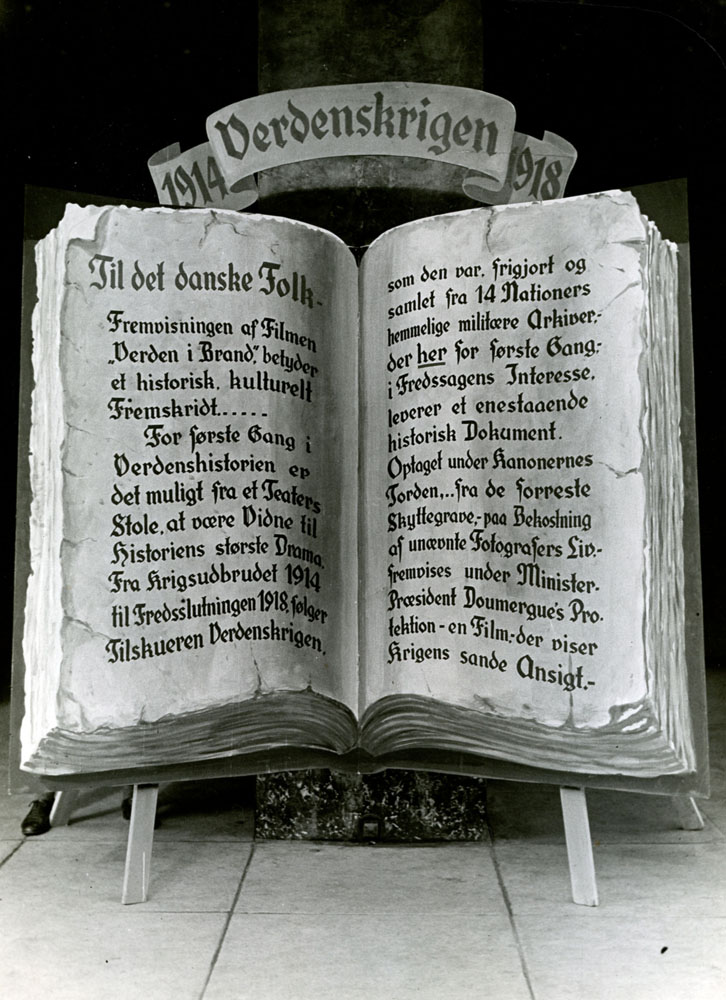 1914 Verdenskrigen 1918
Til det danske Folk-
Fremvisningen af Filmen
„Verden i Brand”, betyder
et historisk, kulturelt
Fremskridt......
For første Gang i
Verdenshistorien er
det muligt fra et Teaters
Stole, at være Vidne til
Historiens største Drama.
Fra Krigsudbrudet 1914
til Fredsslutningen 1918, følger
Tilskueren Verdenskrigen,
som den var, frigjort og
samlet fra 14 Nationers
hemmelige militære Arkiver,-
der her for første Gang,-
i Fredssagens Interesse,
leverer et enestaaende
historisk Dokument.
Optaget under Kanonernes
Torden,..fra de forreste
Skyttegrave,- paa Bekostning
af unævnte Fotografers Liv,-
fremvises under Minister-
Præsident Doumergue's Pro-
tektion - en Film,- der viser
Krigens sande Ansigt.-